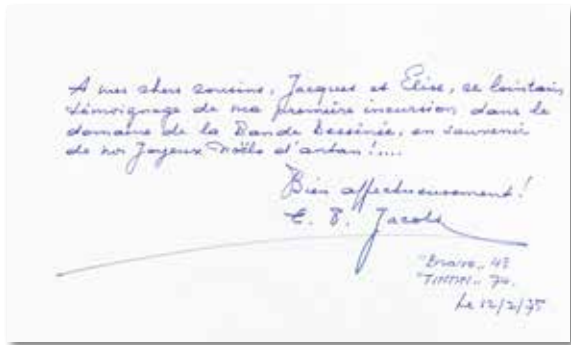 A mes chers cousins, Jacques et Élise, ce lointain
témoignage de ma première incursion dans le
domaine de la Bande Dessinée, en souvenir
de nos Joyeux Noëls d'antan !....
Bien affectueusement !
E. P. Jacobs
"Bravo" 43
"TINTIN" 74.
Le 12/2/75